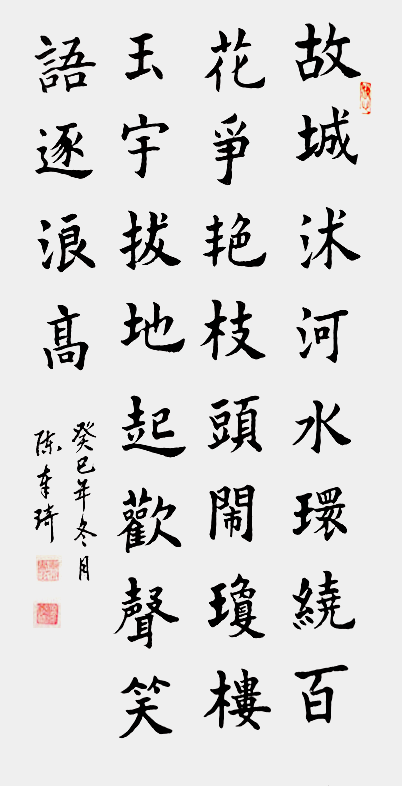 故城沭河水環繞百
花爭艳枝頭鬧瓊樓
玉宇拔地起歡聲笑
語逐浪高
癸巳年冬月
陈奉琦